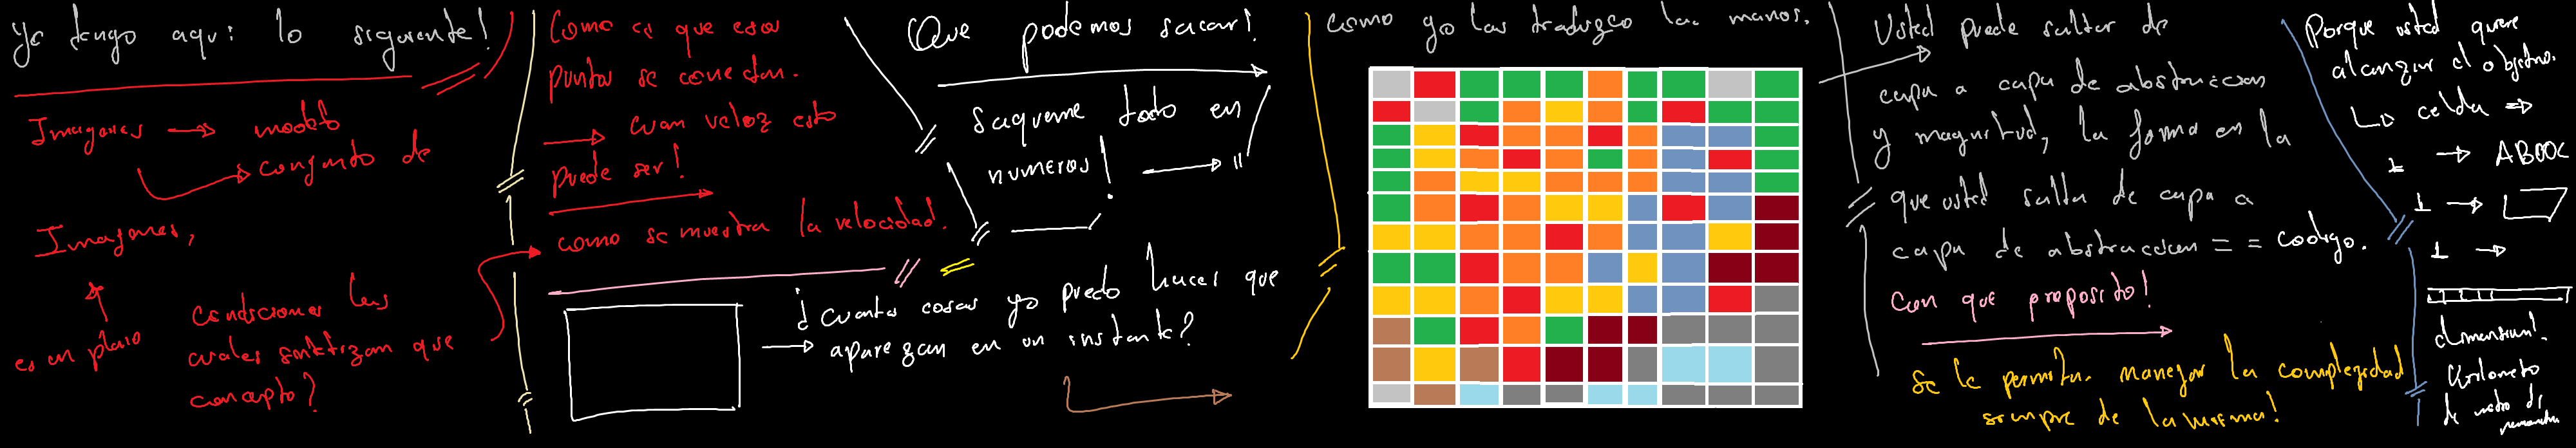 Ya tengo aqui: lo siguiente!
Imagenes → modelo
conjunto de
Imagenes,
es un plano
Condiciones las
cuales sintetizan que
concepto?
Como es que esos
puntos se conectan.
→ cuan veloz esto
puede ser!
como se muestra la velocidad!
Que podemos sacar!
Saqueme todo en
numeros! → "
¿Cuantas cosas yo puedo hacer que
→ aparezcan en un instante?
como yo las traduzco las manos.
Usted puede saltar de
capa a capa de abstraccion
y magnitud, la forma en la
que usted salta de capa a
capa de abstraccion = = codigo.
Con que proposito!
Se le permita manejar la complejidad
siempre de la misma!
Porque usted quiere
alcanzar el objetivo.
Lo celda ⇒
1 →
1 →
1 →
dimension!
Kilometro
de